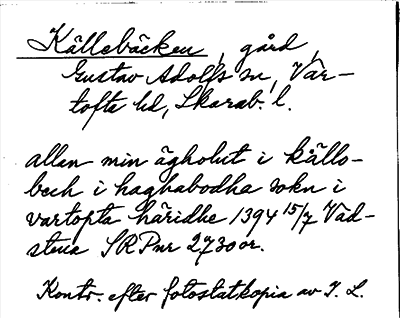 Källebäcken, gård,
Gustav Adolfs sn, Var-
tofta hd, Skarab. l.
allan min ägholut i källo-
bech i haghabodha sokn i
vartopta häridhe 1394 15/7 Vad-
stena SRPnr 2730 or.
Kontr. efter fotostatkopia av I. L.